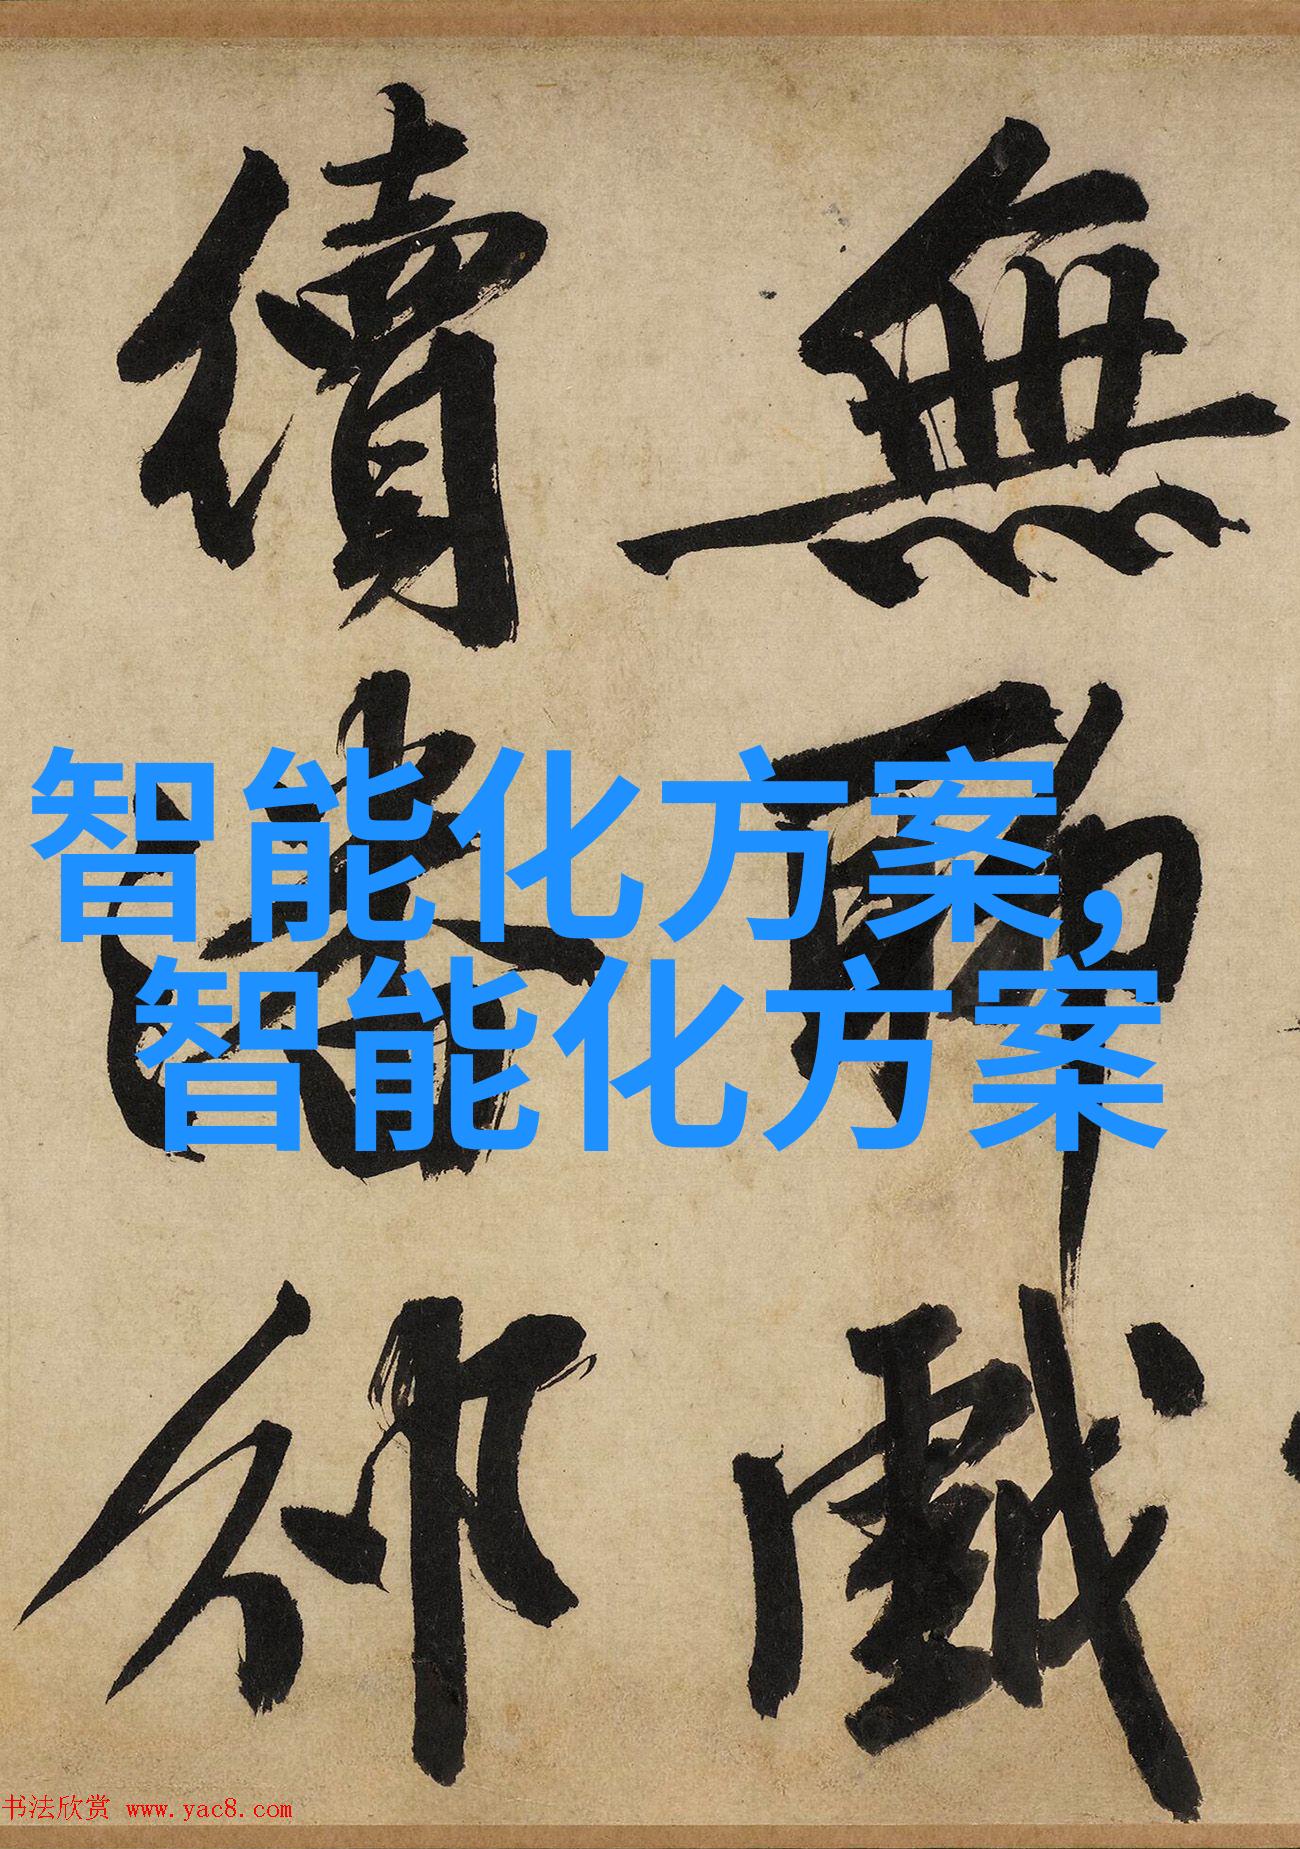 無聊戲
續
智能化方案,
智能化方案
书法欣赏 www.yac8.com